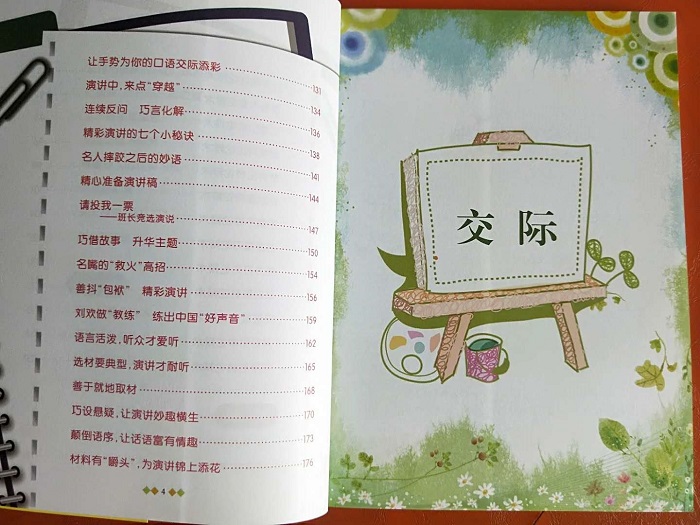 让手势为你的口语交际添彩……131
演讲中，来点“穿越”……134
连续反问　巧言化解……136
精彩演讲的七个小秘诀……138
名人摔跤之后的妙语……141
精心准备演讲稿……144
请投我一票
——班长竞选演说……147
巧借故事　升华主题……150
名嘴的“救火”高招……154
善抖“包袱”　精彩演讲……156
刘欢做“教练”　练出中国“好声音”……159
语言活泼，听众才爱听……162
选材要典型，演讲才耐听……165
善于就地取材……168
巧设悬疑，让演讲妙趣横生……170
颠倒语序，让话语富有情趣……173
材料有“嚼头”，为演讲锦上添花……176
4
交际